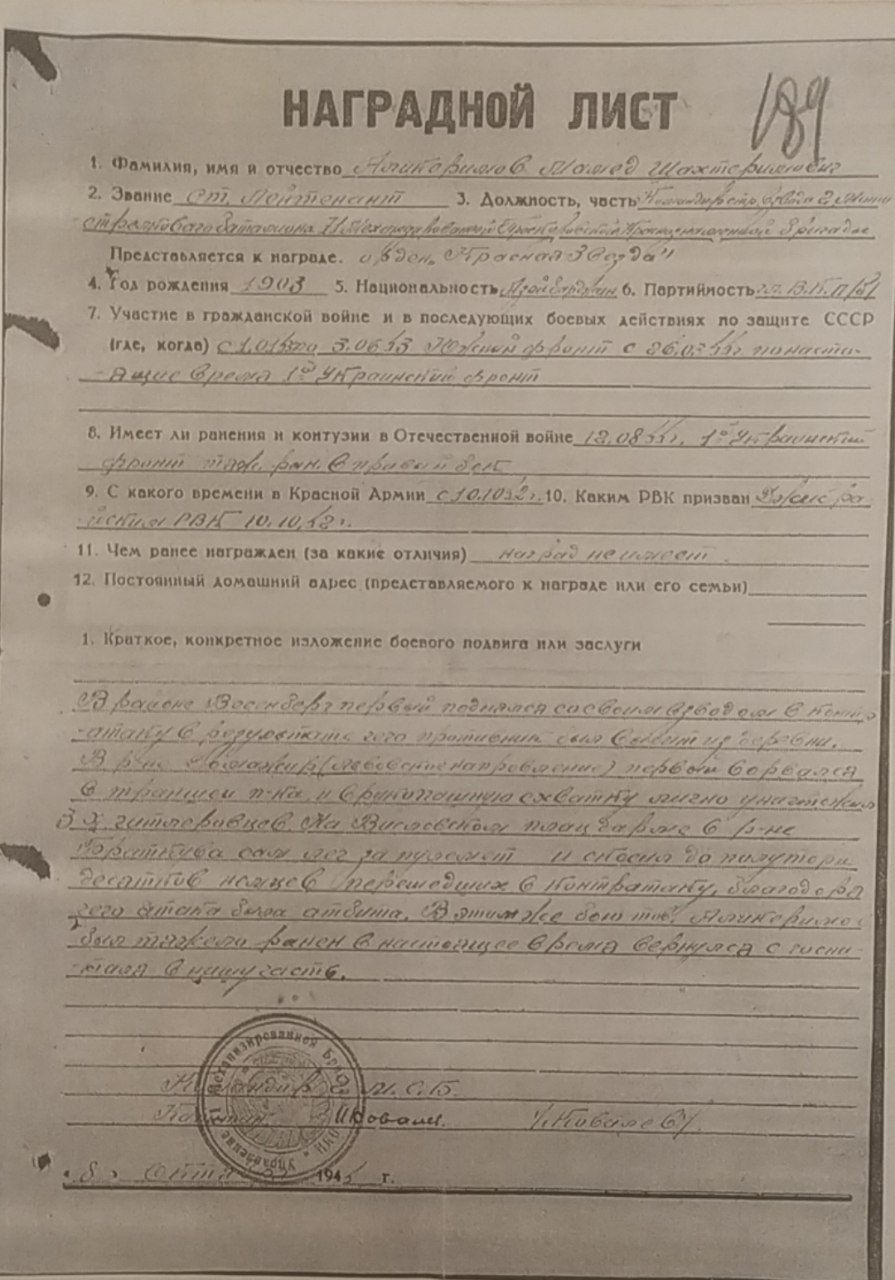 189
НАГРАДНОЙ ЛИСТ
1. Фамилия, имя и отчество Аликеримов Мамед
2. Звание Ст. Лейтенант 3. Должность, часть Командир стр. взвода 2 Мото
стрелкового батальона Механизированной Краснознаменной бригады
Представляется к награде. орден „Красная Звезда"
4. Год рождения 1903 5. Национальность Азербайджан 6. Партийность
7. Участие в гражданской войне и в последующих боевых действиях по защите СССР
(где, когда) Южный фронт с по наста-
-ящие время 1й Украинский фронт
8. Имеет ли ранения и контузии в Отечественной войне 12.08.44г. 1й Украинский
фронт тяж. ран. в правый бок
9. С какого времени в Красной Армии с 10.10.42г. 10. Каким РВК призван
РВК 10.10.42г.
11. Чем ранее награжден (за какие отличия) наград не имеет.
12. Постоянный домашний адрес (представляемого к награде или его семьи)
1. Краткое, конкретное изложение боевого подвига или заслуги
В районе первый поднялся со своим взводом в контр-
-атаку в результате чего противник был выбит из деревни.
В р-не (Львовское направление) первый ворвался
в траншеи п-ка и в рукопашную схватку лично уничтожил
3х гитлеровцев. На Висловском плацдарме в р-не
сам лег за пулемет и скосил до полутора
десятков немцев перешедших в контратаку, благодоря
чего атака была атбита. В этим же бою тов. Аликеримов
был тяжело ранен в настоящее время вернулся с госпи-
-таля в нашу часть.
Командир 2 М.С.Б.
Капитан Ковалев. /Ковалев/
Управление Механизированной НКО
„8" Октября 1944 г.